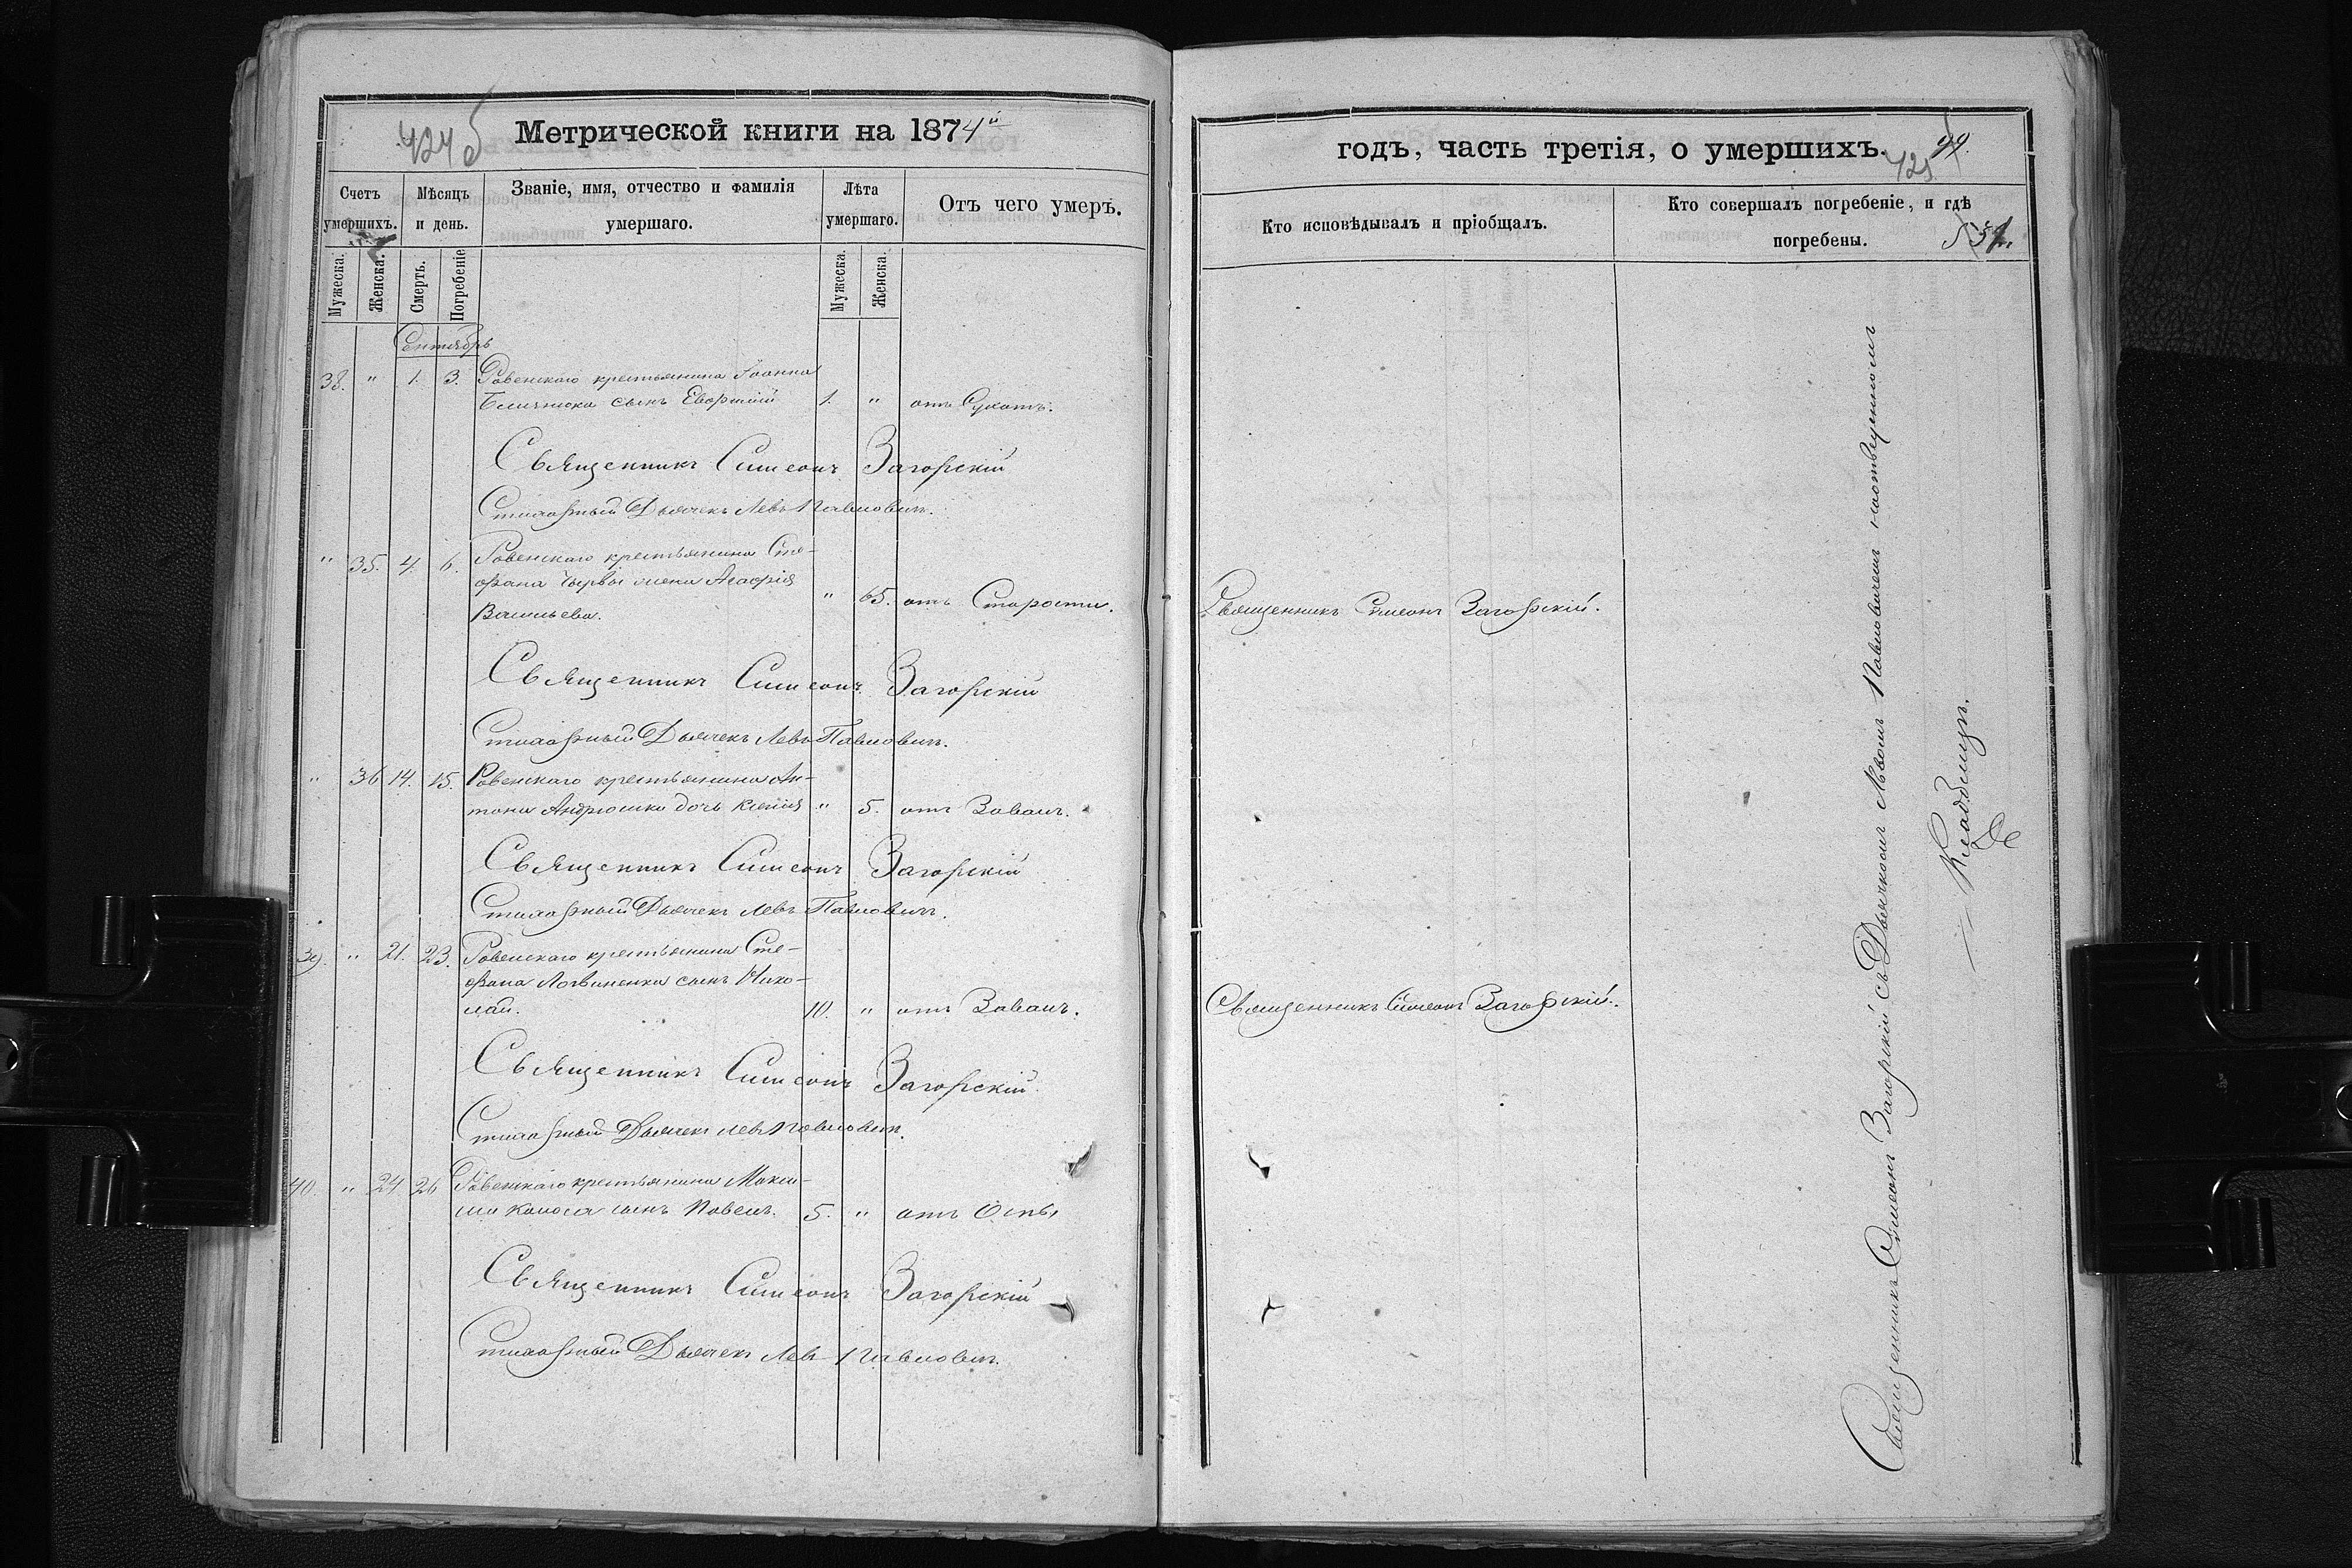 424б
Метрической книги на 1874й
Счетъ умершихъ.
Мѣсяцъ и день.
Званіе, имя, отчество и фамилія умершаго.
Лѣта умершаго.
Отъ чего умеръ.
Мужеска.
Женска.
Смерть.
Погребеніе
Мужеска.
Женска.
Сентябрь
38. " 1. 3. Ровенскаго крестьянина Іоанна
сынъ 1. " отъ Сухотъ.
Священникъ Симеонъ Загорскій
Стихарный Дьячекъ Левъ Павловичъ.
" 35. 4. 6. Ровенскаго крестьянина Сте-
фана жена Агафія
Васильева. " 65. отъ Старости.
Священникъ Симеонъ Загорскій
Стихарный Дьячекъ Левъ Павловичъ.
" 36 14. 15. Ровенскаго крестьянина Ан-
тона Андрюшка дочь Ксенія " 5. отъ Завалъ.
Священникъ Симеонъ Загорскій
Стихарный Дьячекъ Левъ Павловичъ.
39. " 21. 23. Ровенскаго крестьянина Сте-
фана Логвиненка сынъ Нико-
лай. 10. " отъ Завалъ.
Священникъ Симеонъ Загорскій
Стихарный Дьячекъ Левъ Павловичъ.
40. " 24 26 Ровенскаго крестьянина Макси-
ма сынъ Павелъ. 5. " отъ Оспы
Священникъ Симеонъ Загорскій
Стихарный Дьячекъ Левъ Павловичъ.
годъ, часть третія, о умершихъ.
425
99.
Кто исповѣдывалъ и пріобщалъ.
Кто совершалъ погребеніе, и гдѣ
погребены.
Священникъ Симеонъ Загорскій.
Священникъ Симеонъ Загорскій.
Священникъ Симеонъ Загорскій съ Дьячкомъ Львомъ Павловичемъ на
Кладбищѣ.